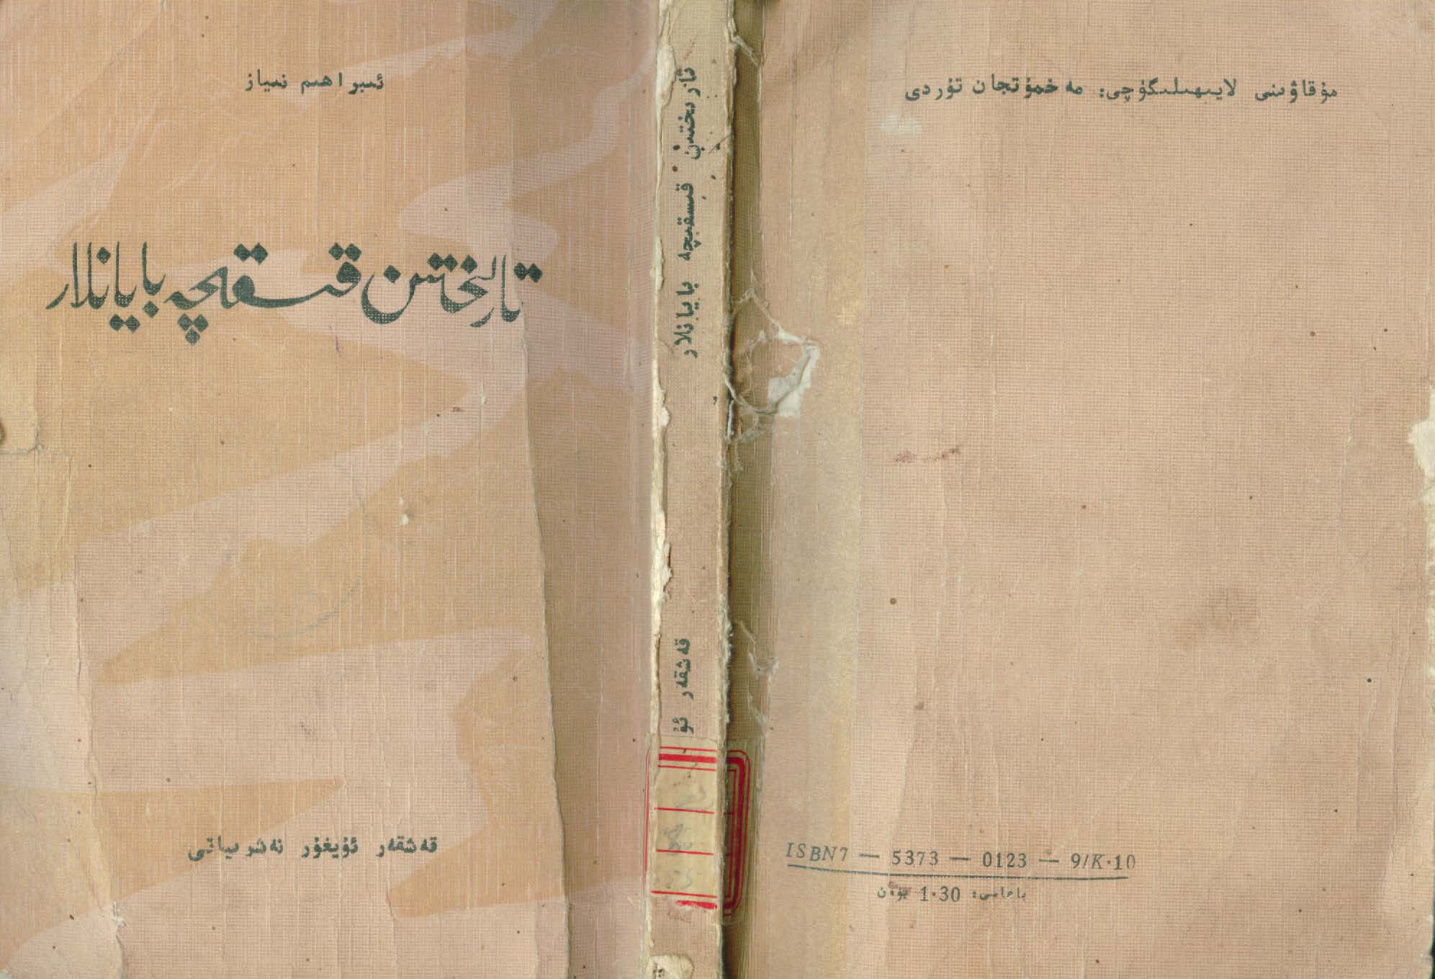 ئىبراھىم نىياز
تارىختىن قىسقىچە بايانلار
قەشقەر ئۇيغۇر نەشرىياتى
تارىختىن قىسقىچە بايانلار
قەشقەر ئۇ
مۇقاۋىنى لايىھىلىگۈچى: مەخمۇتجان تۇردى
ISBN7 — 5373 — 0123 — 9/K·10
باھاسى: 1.30 يۈەن